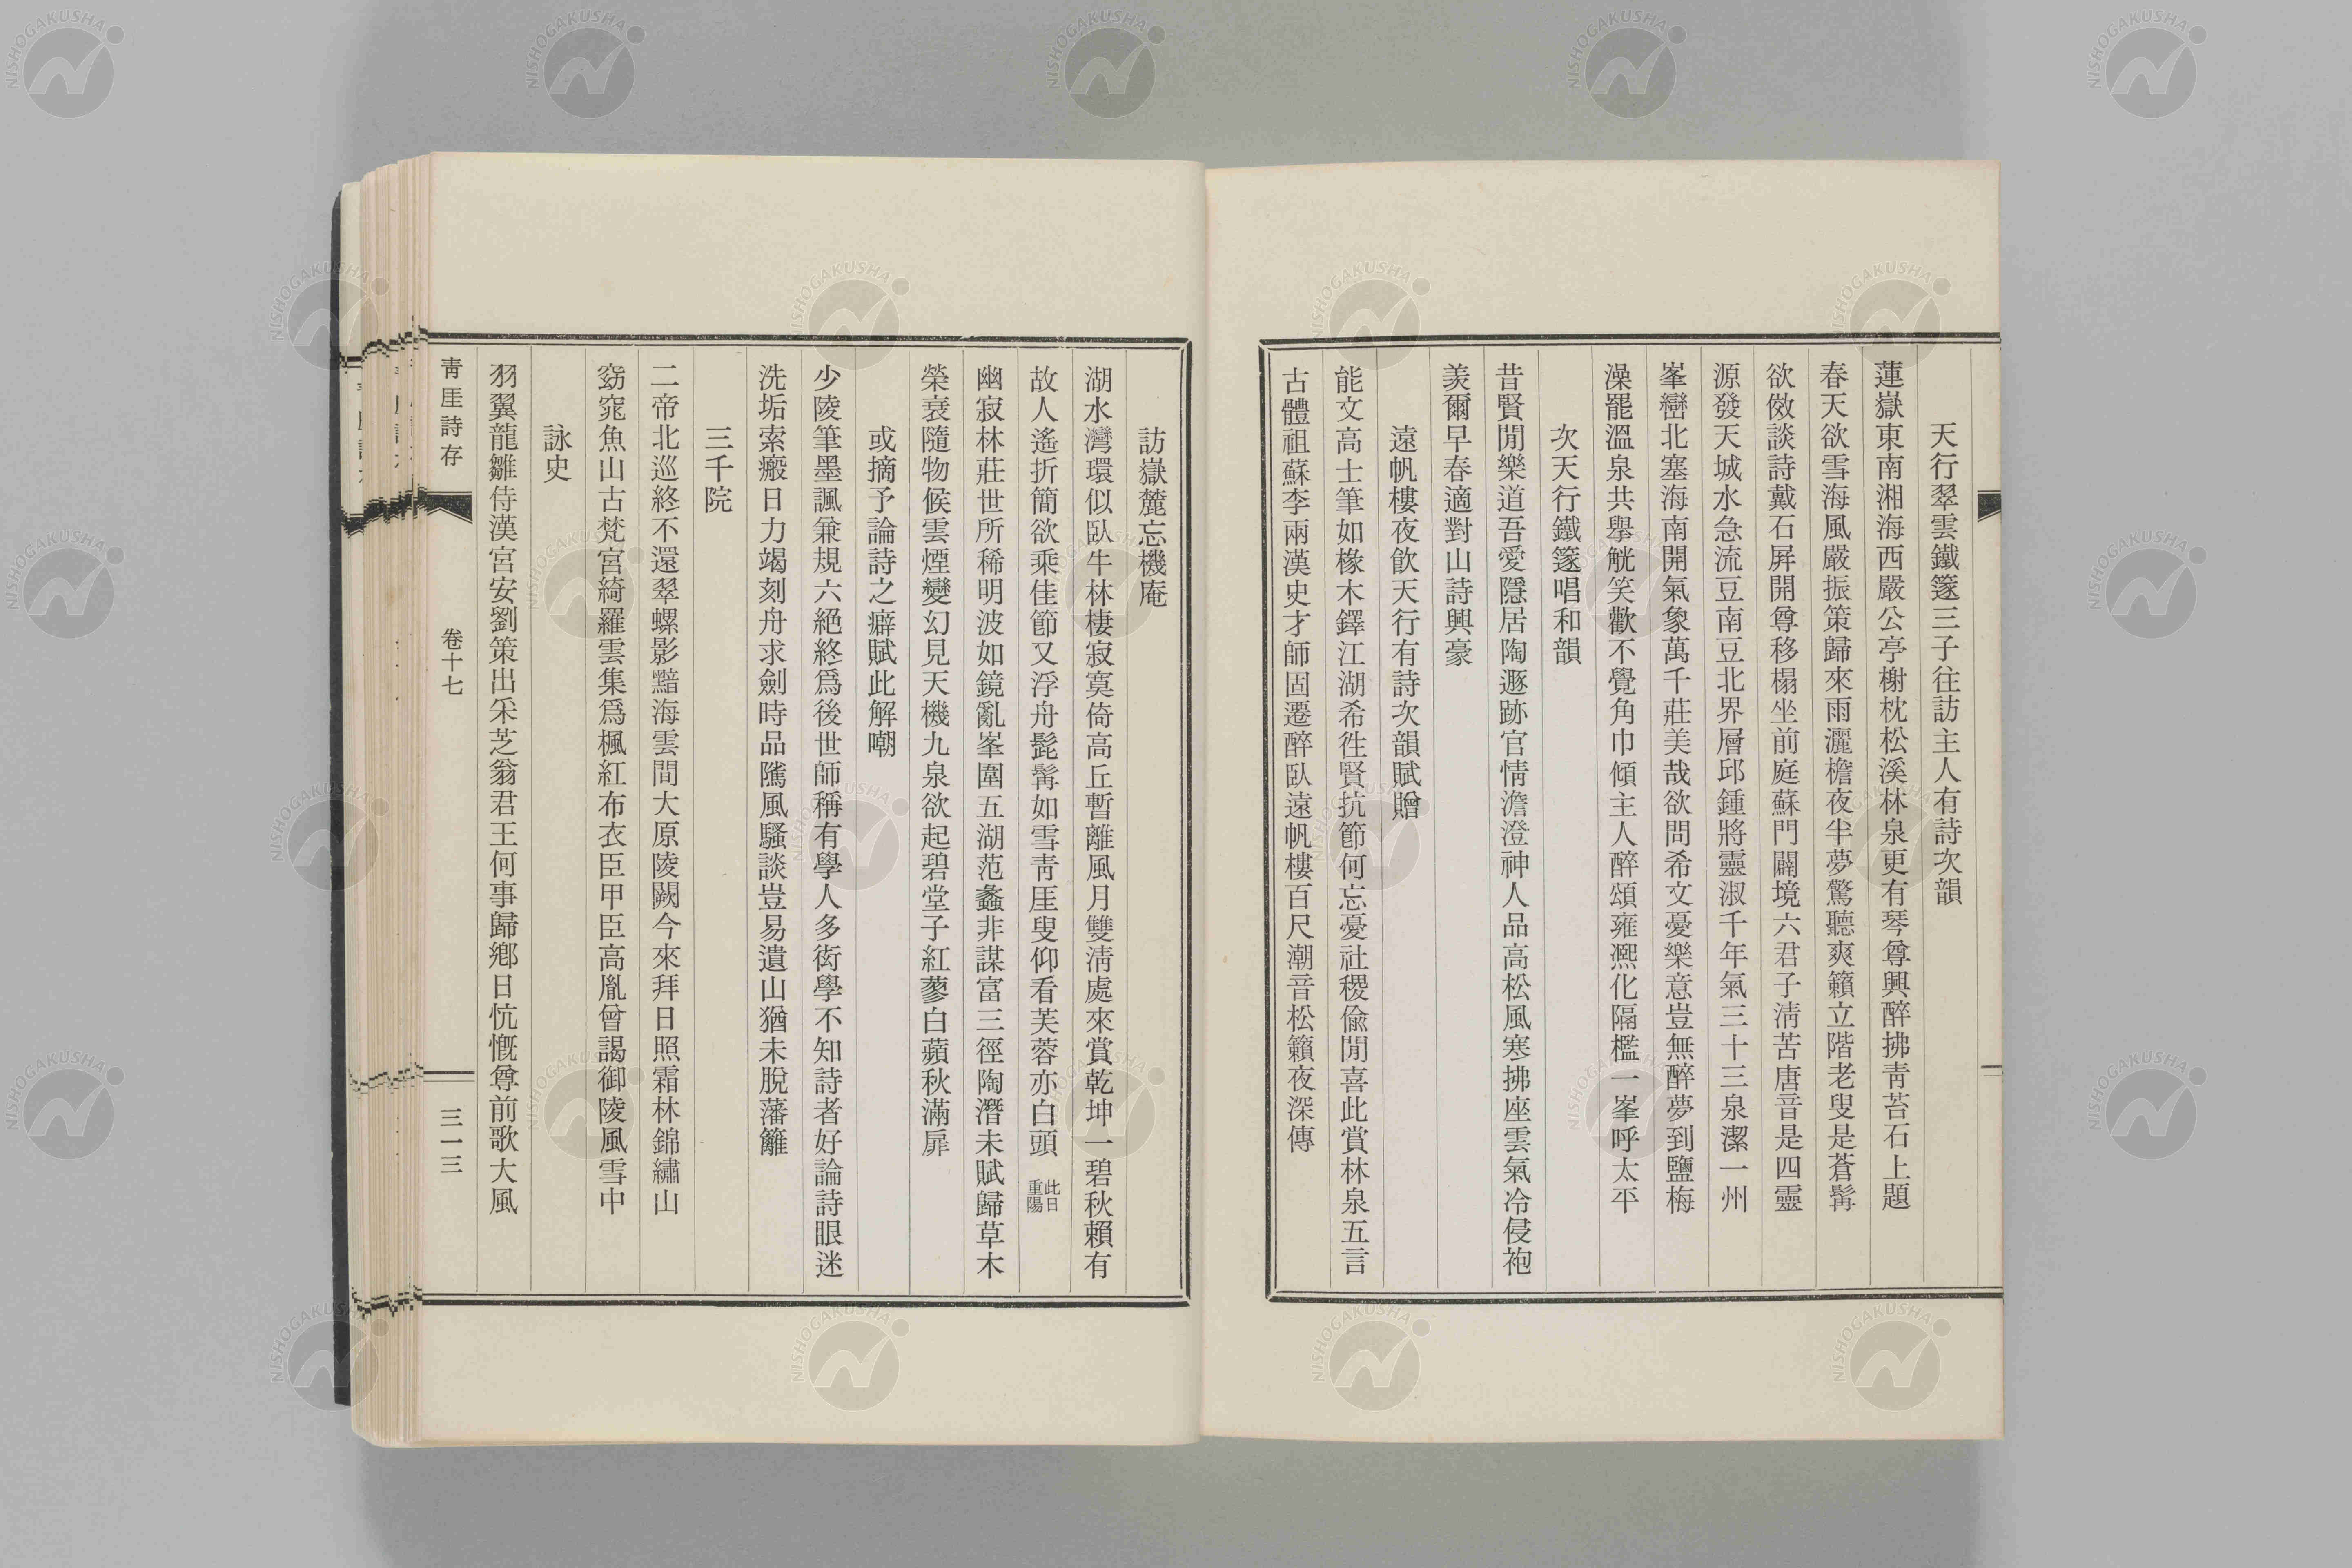 天行翠雲鐵篴三子往訪主人有詩次韻
蓮嶽東南湘海西嚴公亭榭枕松溪林泉更有琴尊興醉拂靑苔石上題
春天欲雪海風嚴振策歸來雨灑檐夜半夢驚聽爽籟立階老叟是蒼髯
欲傚談詩戴石屏開尊移榻坐前庭蘇門闢境六君子淸苦唐音是四靈
源發天城水急流豆南豆北界層邱鍾將靈淑千年氣三十三泉潔一州
峯巒北塞海南開氣象萬千莊美哉欲問希文憂樂意豈無醉夢到鹽梅
澡罷溫泉共擧觥笑歡不覺角巾傾主人醉頌雍凞化隔檻一峯呼太平
次天行鐵篴唱和韻
昔賢閒樂道吾愛隱居陶遯跡官情澹澄神人品高松風寒拂座雲氣冷侵袍
羨爾早春適對山詩興豪
遠帆樓夜飮天行有詩次韻賦贈
能文高士筆如椽木鐸江湖希徃賢抗節何忘憂社稷偸閒喜此賞林泉五言
古體祖蘇李兩漢史才師固遷醉臥遠帆樓百尺潮音松籟夜深傳
訪嶽麓忘機庵
湖水灣環似臥牛林棲寂寞倚高丘暫離風月雙淸處來賞乾坤一碧秋賴有
故人遙折簡欲乘佳節又浮舟髭髯如雪靑厓叟仰看芙蓉亦白頭 此日重陽
幽寂林莊世所稀明波如鏡亂峯圍五湖范蠡非謀富三徑陶潛未賦歸草木
榮衰隨物候雲煙變幻見天機九泉欲起碧堂子紅蓼白蘋秋滿扉
或摘予論詩之癖賦此解嘲
少陵筆墨諷兼規六絕終爲後世師稱有學人多衒學不知詩者好論詩眼迷
洗垢索瘢日力竭刻舟求劍時品隲風騷談豈易遺山猶未脫藩籬
三千院
二帝北巡終不還翠螺影黯海雲間大原陵闕今來拜日照霜林錦繡山
窈窕魚山古梵宮綺羅雲集爲楓紅布衣臣甲臣高胤曾謁御陵風雪中
詠史
羽翼龍雛侍漢宮安劉策出采芝翁君王何事歸鄕日忼慨尊前歌大風
靑厓詩存
卷十七
三一三